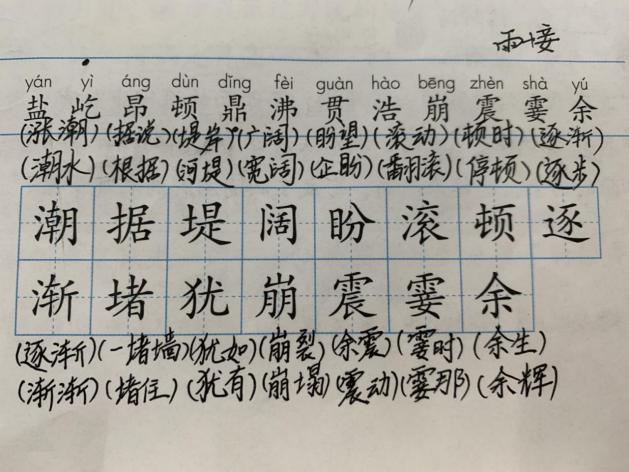 雨接
yán yì áng dùn dǐng fèi guàn hào bēng zhèn shà yú
盐 屹 昂 顿 鼎 沸 贯 浩 崩 震 霎 余
(涨潮)(据说)(堤岸)(广阔)(盼望)(滚动)(顿时)(逐渐)
(潮水)(根据)(河堤)(宽阔)(企盼)(翻滚)(停顿)(逐步)
潮 据 堤 阔 盼 滚 顿 逐
渐 堵 犹 崩 震 霎 余
(逐渐)(一堵墙)(犹如)(崩裂)(余震)(霎时)(余生)
(渐渐)(堵住)(犹有)(崩塌)(震动)(霎那)(余辉)